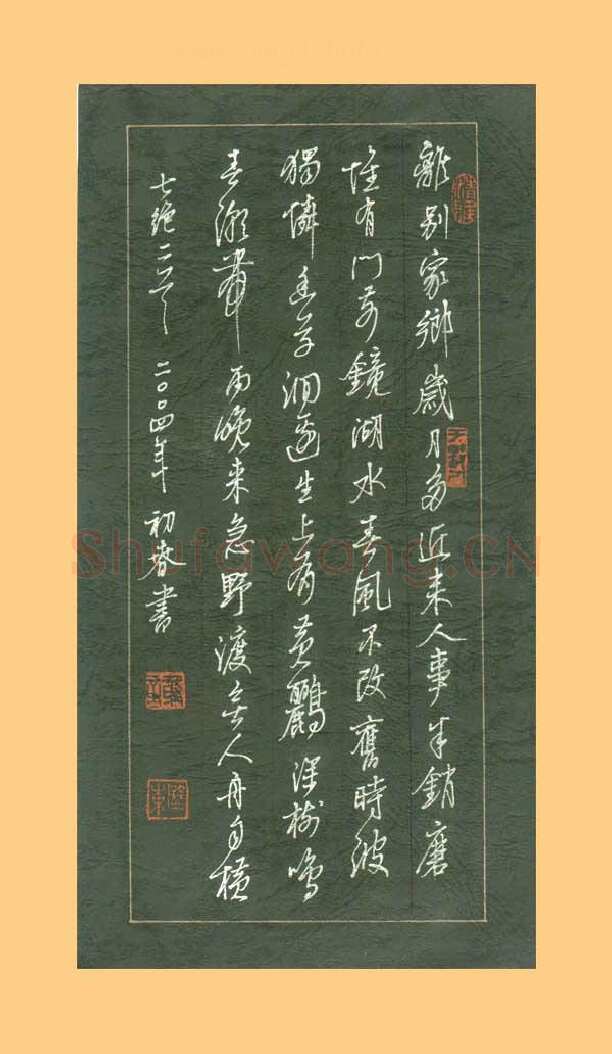 離别家鄉歲月多近来人事半銷磨
惟有門前鏡湖水春風不改舊時波
獨憐幽草澗邊生上有黄鸝深樹鳴
春潮帶雨晚来急野渡無人舟自横
七絶二首 二〇〇四年初春書
Shufawang.CN